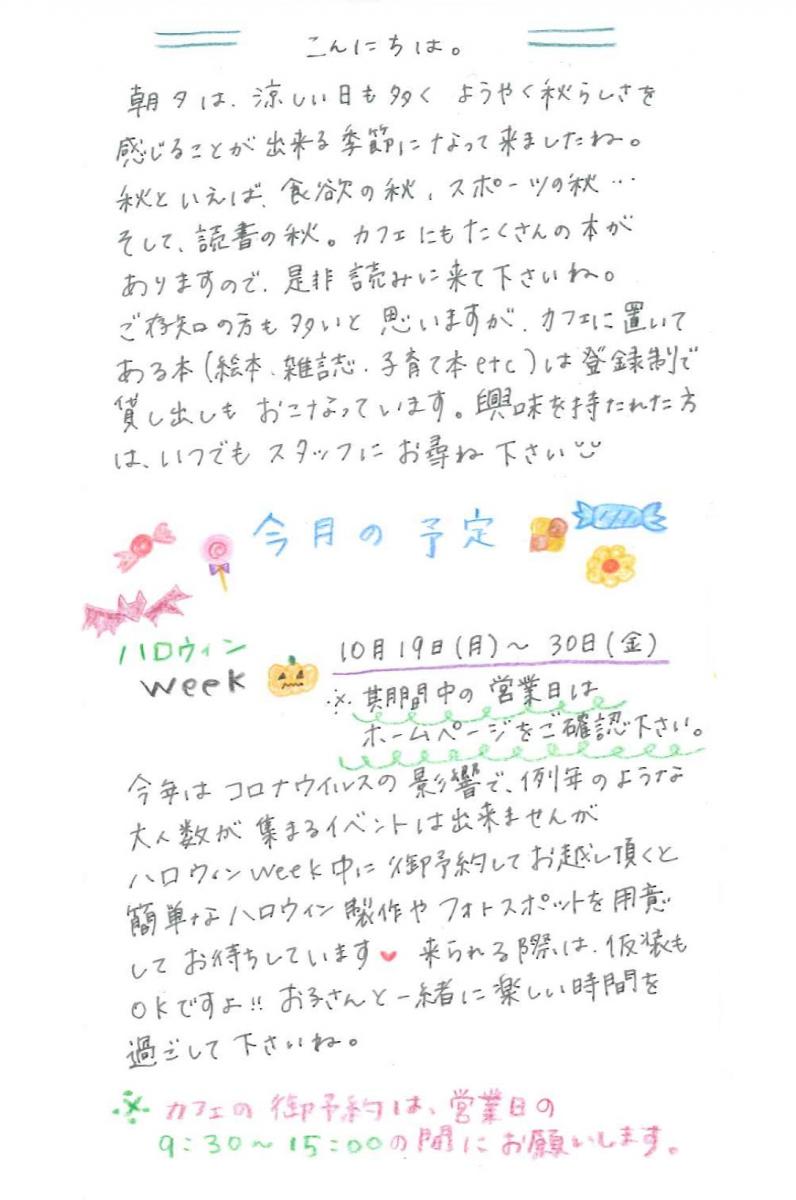 こんにちは。
朝夕は、涼しい日も多く ようやく秋らしさを
感じることが出来る季節になって来ましたね。
秋といえば、食欲の秋、スポーツの秋…
そして、読書の秋。カフェにもたくさんの本が
ありますので、是非読みに来て下さいね。
ご存知の方も多いと思いますが、カフェに置いて
ある本(絵本、雑誌、子育て本etc)は登録制で
貸し出しもおこなっています。興味を持たれた方
は、いつでもスタッフにお尋ね下さい
今月の予定
ハロウィン
week
10月19日(月)〜30日(金)
※其期間中の営業日は
ホームページをご確認下さい。
今年はコロナウイルスの影響で、例年のような
大人数が集まるイベントは出来ませんが
ハロウィンweek中に御予約してお越し頂くと
簡単なハロウィン製作やフォトスポットを用意
してお待ちしています♥ 来られる際は、仮装も
OKですよ!! お子さんと一緒に楽しい時間を
過ごして下さいね。
※カフェの御予約は、営業日の
9:30〜15:00の間にお願いします。